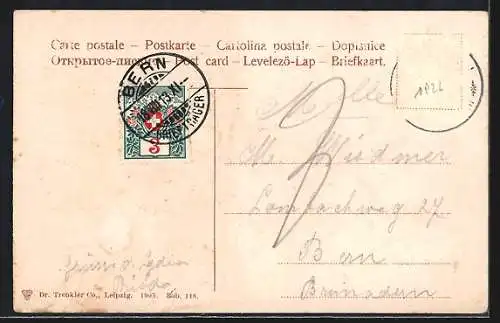 Carte postale – Postkarte – Cartolina postale – Dopisnice
Открытое письмо – Post card – Levelező-Lap – Briefkaart.
BERN
BRIEFTRÄGER
1826
Melle
M. Widmer
Lombachweg 27
Bern
Dr. Trenkler Co., Leipzig. 1905. Bob. 118.